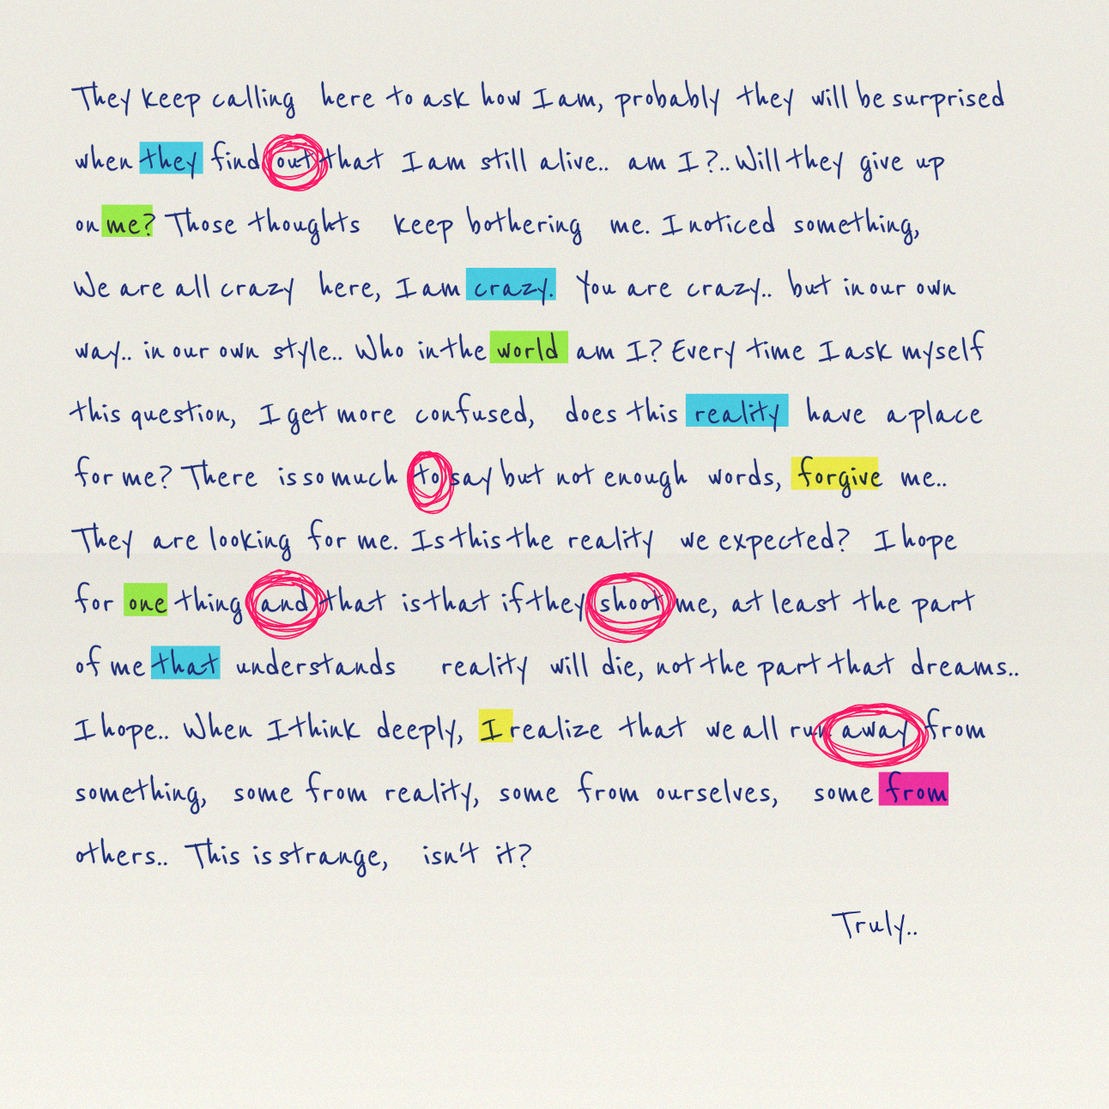 They keep calling here to ask how I am, probably they will be surprised
when they find out that I am still alive.. am I?.. Will they give up
on me? Those thoughts keep bothering me. I noticed something,
We are all crazy here, I am crazy. You are crazy.. but in our own
way.. in our own style.. Who in the world am I? Every time I ask myself
this question, I get more confused, does this reality have a place
for me? There is so much to say but not enough words, forgive me..
They are looking for me. Is this the reality we expected? I hope
for one thing and that is that if they shoot me, at least the part
of me that understands reality will die, not the part that dreams..
I hope.. When I think deeply, I realize that we all run away from
something, some from reality, some from ourselves, some from
others.. This is strange, isn't it?
Truly..